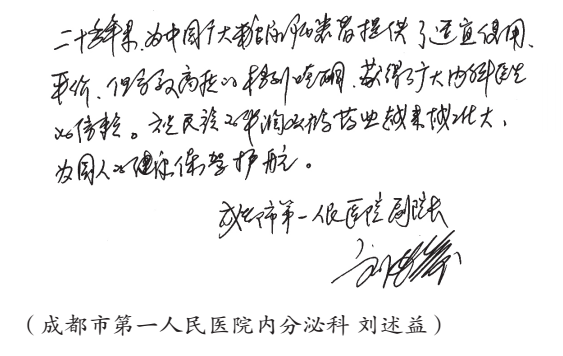 二十多年来,为中国广大糖尿病患者提供了适宜使用、
平价、但疗效高的格列喹酮,获得了广大内科医生
的信赖。民族的华润双鹤药业越来越壮大,
为国人的健康保驾护航。
成都市第一人民医院副院长
刘述益
(成都市第一人民医院内分泌科 刘述益)